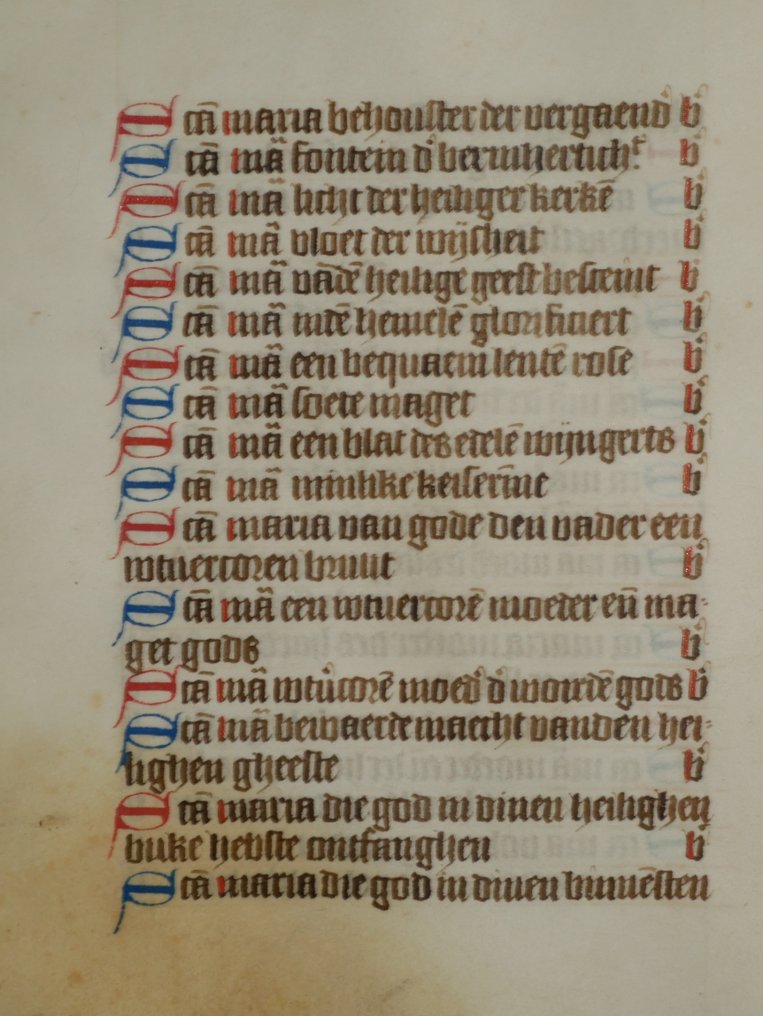 Scā maria behouster der vergaend' b'
Scā mā fontein d' bermhertich:t b'
Scā mā licht der heiliger kerkē b'
Scā mā vloet der wijsheit b'
Scā mā vādē heilige geest besceint b'
Scā mā indē hemelē glorificiert b'
Scā mā een bequaem lentē rose b'
Scā mā soete maget b'
Scā mā een blat des edelē wijngerts b'
Scā mā minlike keiserīne b'
Scā maria van gode den vader een
wtuercoren bruut b'
Scā mā een wtuercorē moeder eñ ma-
get gods b'
Scā mā wtu'corē moed' d' woordē gods b'
Scā mā bewaerde maecht vanden hei-
lighen gheeste b'
Scā maria die god in dinen heilighen
buke hebste ontfanghen b'
Scā maria die god in dinen binnēsten